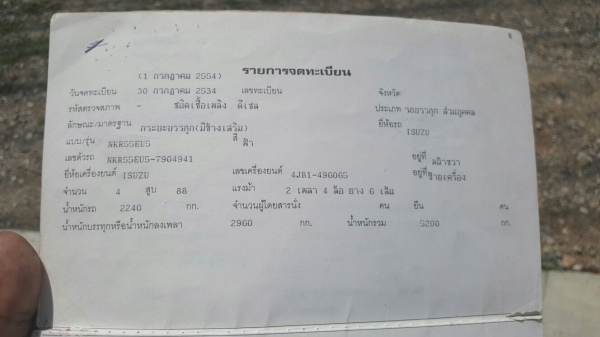 6
รายการจดทะเบียน
(1 กรกฎาคม 2554)
วันจดทะเบียน 30 กรกฎาคม 2534 เลขทะเบียน จังหวัด
รหัสตรวจสภาพ - ชนิดเชื้อเพลิง ดีเซล ประเภท รถบรรทุก ส่วนบุคคล
ลักษณะ/มาตรฐาน กระบะบรรทุก(มีข้างเสริม) ยี่ห้อรถ ISUZU
แบบ/รุ่น NKR55EU5 สี ฟ้า
เลขตัวรถ NKR55EU5-7904941 อยู่ที่
ยี่ห้อเครื่องยนต์ ISUZU เลขเครื่องยนต์ 4JB1-496065 อยู่ที่ ซ้ายเครื่อง
จำนวน 4 สูบ 88 แรงม้า 2 เพลา 4 ล้อ ยาง 6 เส้น
น้ำหนักรถ 2240 กก. จำนวนผู้โดยสารนั่ง คน ยืน คน
น้ำหนักบรรทุกหรือน้ำหนักลงเพลา 2960 กก. น้ำหนักรวม 5200 กก.